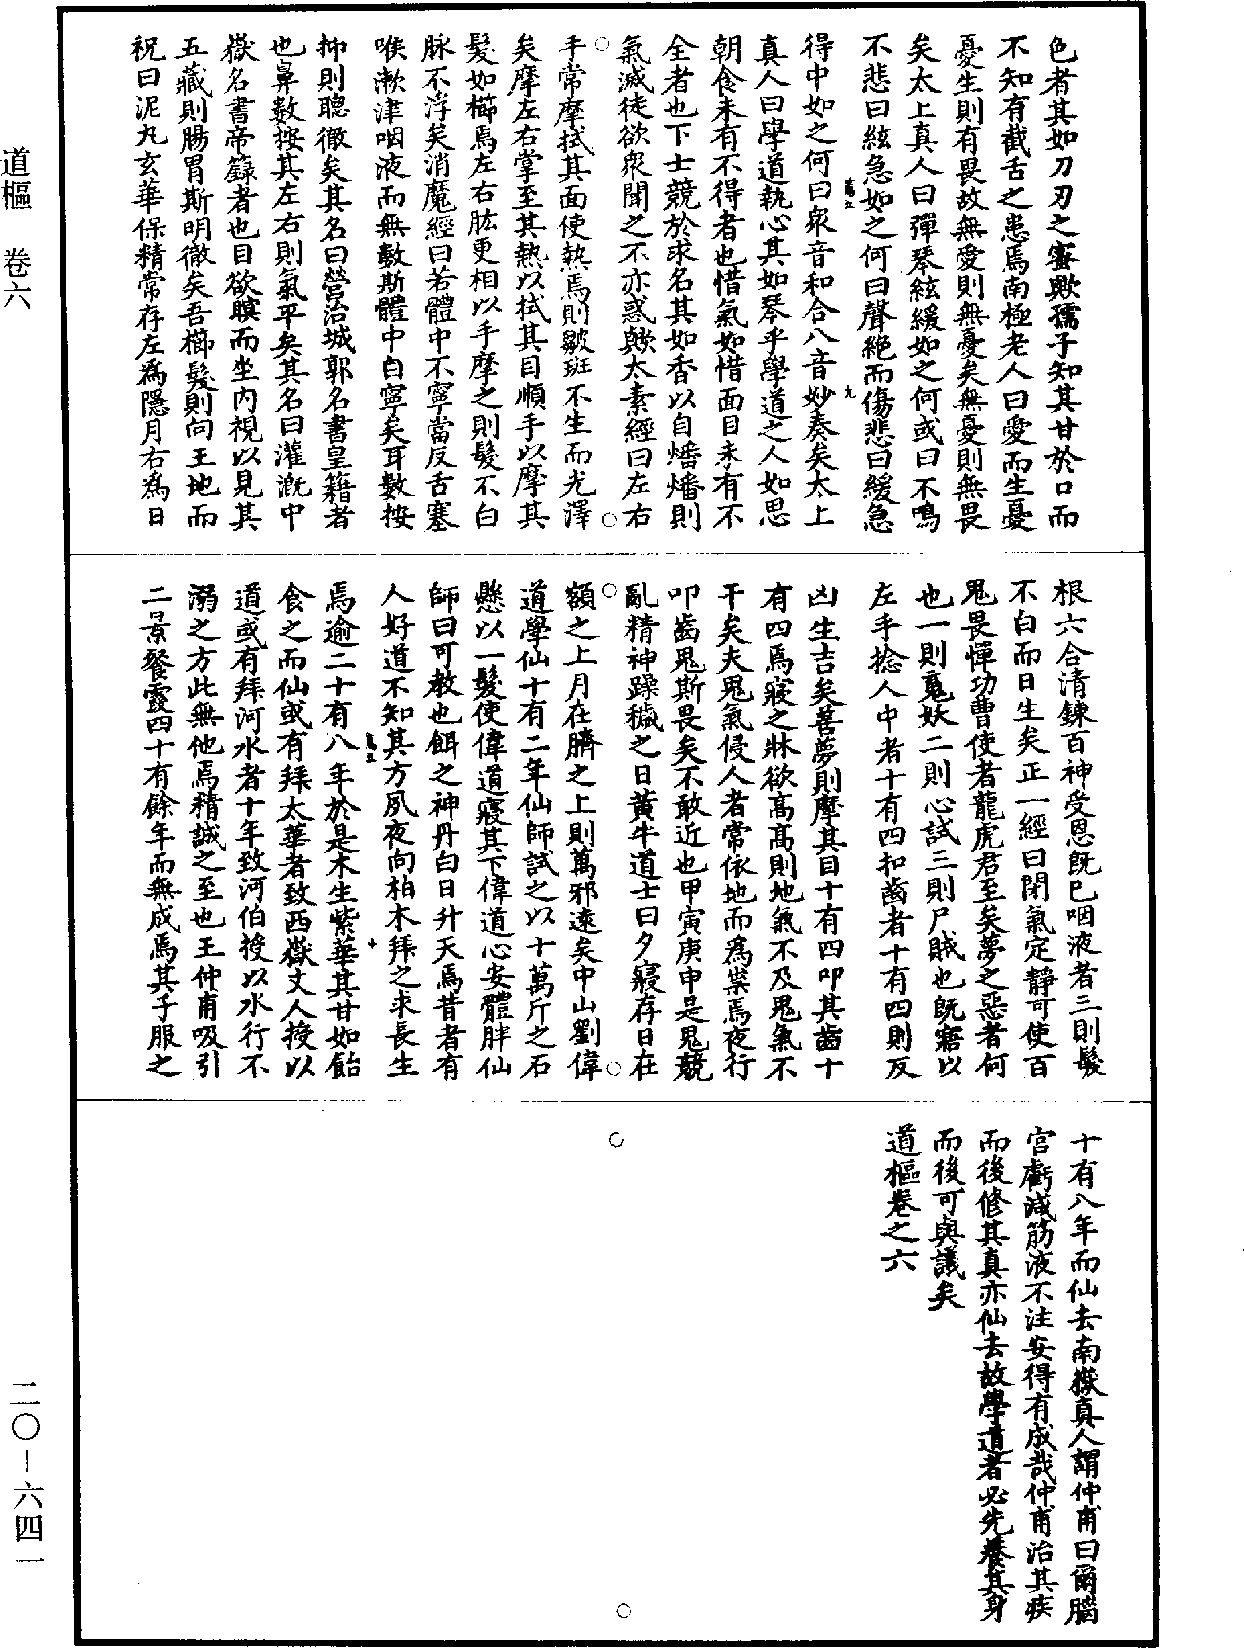 道樞 卷六
色者其如刀刃之蜜歟孺子知其甘於口而
不知有截舌之患焉南極老人曰愛而生憂
憂生則有畏故無愛則無憂矣無憂則無畏
矣太上真人曰彈琴絃緩如之何或曰不鳴
不悲曰絃急如之何曰聲絕而傷悲曰緩急
得中如之何曰衆音和合八音妙奏矣太上
真人曰學道執心其如琴乎學道之人如思
朝食未有不得者也惜氣如惜面目未有不
全者也下士競於求名其如香以自燔燔則
氣滅徒欲衆聞之不亦惑歟太素經曰左右
手常摩拭其面使熱焉則皺斑不生而光澤
矣摩左右掌至其熱以拭其目順手以摩其
髮如櫛焉左右肱更相以手摩之則髮不白
脉不浮矣消魔經曰若體中不寧當反舌塞
喉漱津咽液而無數斯體中自寧矣耳數按
抑則聰徹矣其名曰營治城郭名書皇籍者
也鼻數按其左右則氣平矣其名曰灌漑中
嶽名書帝籙者也目欲瞑而坐內視以見其
五藏則腸胃斯明徹矣吾櫛髮則向王地而
祝曰泥丸玄華保精常存左爲隱月右爲日
根六合清鍊百神受恩旣已咽液者三則髮
不白而日生矣正一經曰閉氣定靜可使百
鬼畏憚功曹使者龍虎君至矣夢之惡者何
也一則䰡妖二則心試三則尸賊也旣寤以
左手捻人中者十有四扣齒者十有四則反
凶生吉矣善夢則摩其目十有四叩其齒十
有四焉寢之牀欲高高則地氣不及鬼氣不
干矣夫鬼氣侵人者常依地而爲祟焉夜行
叩齒鬼斯畏矣不敢近也甲寅庚申是鬼競
亂精神躁穢之日黃牛道士曰夕寢存日在
額之上月在臍之上則萬邪遠矣中山劉偉
道學仙十有二年仙師試之以十萬斤之石
懸以一髮使偉道寢其下偉道心安體胖仙
師曰可教也餌之神丹白日升天焉昔者有
人好道不知其方夙夜向柏木拜之求長生
焉逾二十有八年於是木生紫華其甘如飴
食之而仙或有拜太華者致西嶽丈人授以
道或有拜河水者十年致河伯授以水行不
溺之方此無他焉精誠之至也王仲甫吸引
二景餐霞四十有餘年而無成焉其子服之
十有八年而仙去南嶽真人謂仲甫曰爾腦
宮虧減筋液不注安得有成哉仲甫治其疾
而後修其真亦仙去故學道者必先養其身
而後可與議矣
道樞卷之六
二〇-六四一